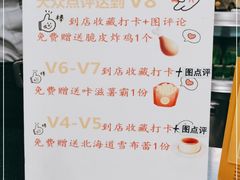 大众点评达到 V8
到店收藏打卡+图评论
免费赠送脆皮炸鸡1个
V6-V7到店收藏打卡+图点评
免费赠送卡滋薯霸1份
V4-V5到店收藏打卡+图点评
免费赠送北海道雪布蕾1份